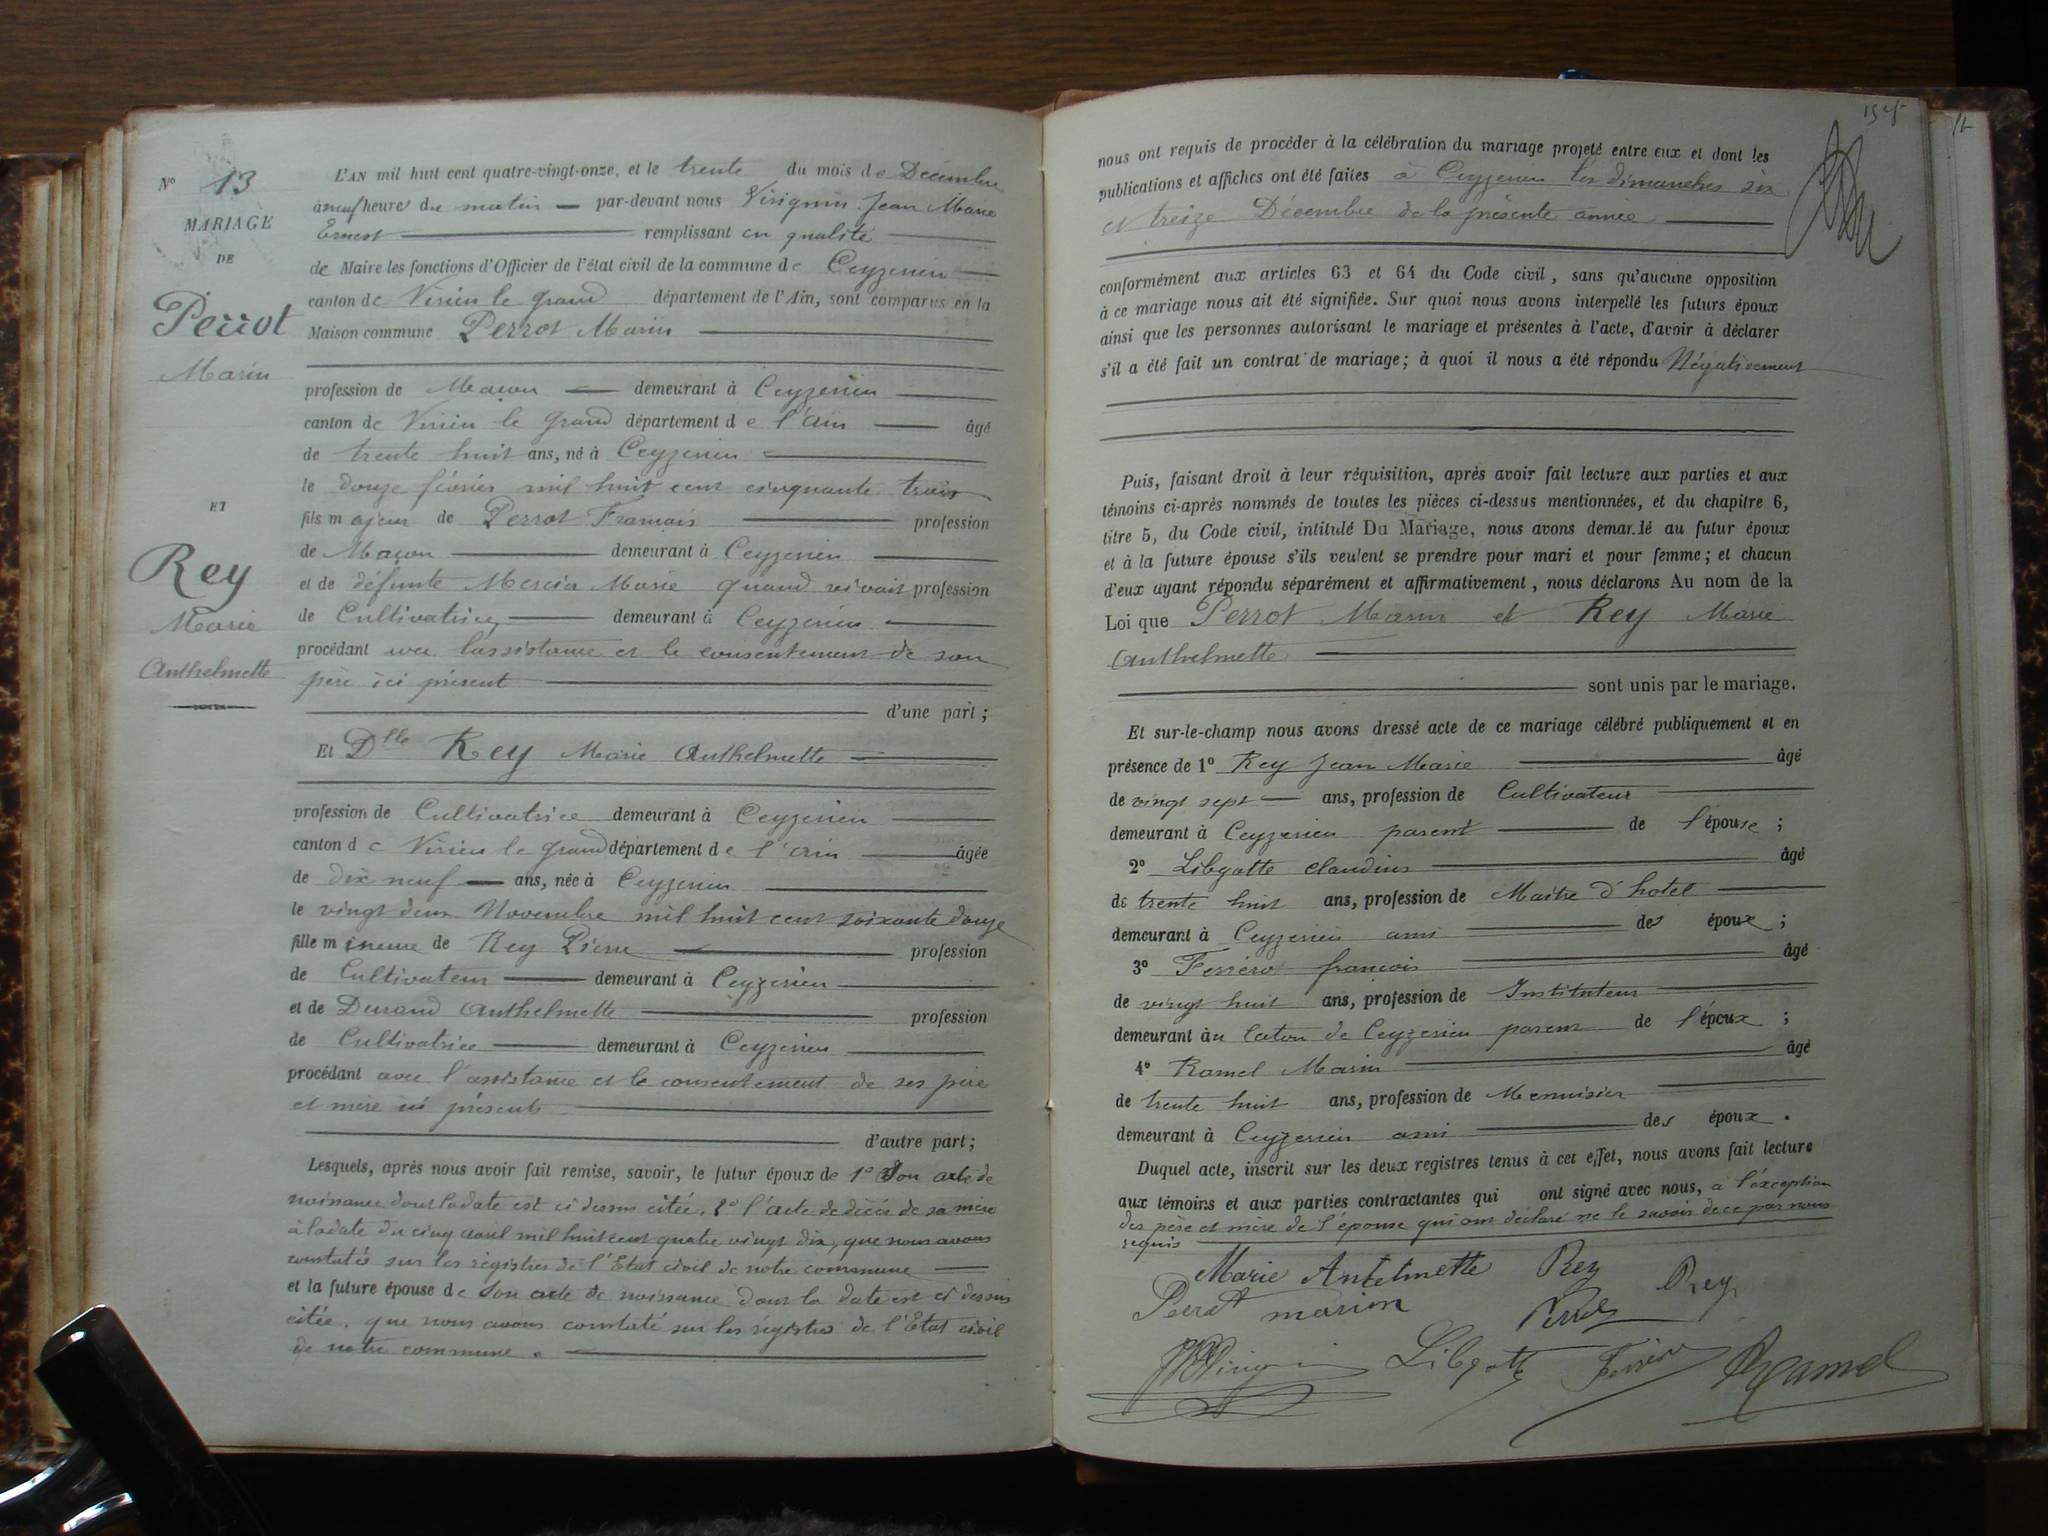 N° 13
MARIAGE
DE
Perrot
Marin
ET
Rey
Marie
Anthelmette
L'AN mil huit cent quatre-vingt-onze, et le trente du mois de Décembre
à neuf heures du matin par-devant nous Virignin Jean Marie
Ernest remplissant en qualité
de Maire les fonctions d'Officier de l'état civil de la commune de Ceyzerieu
canton de Virieu le grand département de l'Ain, sont comparus en la
Maison commune Perrot Marin
profession de Maçon demeurant à Ceyzerieu
canton de Virieu le grand département de l'Ain âgé
de trente huit ans, né à Ceyzerieu
le douze février mil huit cent cinquante trois
fils majeur de Perrot Francois profession
de Maçon demeurant à Ceyzerieu
et de défunte Mercier Marie quand vivait profession
de Cultivatrice demeurant à Ceyzerieu
procédant avec l'assistance et le consentement de son
père ici présent
d'une part ;
Et Dlle Rey Marie Anthelmette
profession de Cultivatrice demeurant à Ceyzerieu
canton de Virieu le grand département de l'Ain âgée
de dix neuf ans, née à Ceyzerieu
le vingt deux Novembre mil huit cent soixante douze
fille mineure de Rey Pierre profession
de Cultivateur demeurant à Ceyzerieu
et de Durand Anthelmette profession
de Cultivatrice demeurant à Ceyzerieu
procédant avec l'assistance et le consentement de ses père
et mère ici présents
d'autre part ;
Lesquels, après nous avoir fait remise, savoir, le futur époux de 1° Son acte de
naissance dont la date est ci dessus citée, 2° l'acte de décès de sa mère
à la date du cinq avril mil huit cent quatre vingt dix, que nous avons
constatés sur les registres de l'Etat civil de notre commune
et la future épouse de Son acte de naissance dont la date est ci dessus
citée, que nous avons constaté sur les registres de l'Etat civil
de notre commune.
nous ont requis de procéder à la célébration du mariage projeté entre eux et dont les
publications et affiches ont été faites à Ceyzerieu les dimanches six
et treize Décembre de la présente année
conformément aux articles 63 et 64 du Code civil, sans qu'aucune opposition
à ce mariage nous ait été signifiée. Sur quoi nous avons interpellé les futurs époux
ainsi que les personnes autorisant le mariage et présentes à l'acte, d'avoir à déclarer
s'il a été fait un contrat de mariage ; à quoi il nous a été répondu Négativement
Puis, faisant droit à leur réquisition, après avoir fait lecture aux parties et aux
témoins ci-après nommés de toutes les pièces ci-dessus mentionnées, et du chapitre 6,
titre 5, du Code civil, intitulé Du Mariage, nous avons demandé au futur époux
et à la future épouse s'ils veulent se prendre pour mari et pour femme ; et chacun
d'eux ayant répondu séparément et affirmativement, nous déclarons Au nom de la
Loi que Perrot Marin et Rey Marie
Anthelmette
sont unis par le mariage.
Et sur-le-champ nous avons dressé acte de ce mariage célébré publiquement et en
présence de 1° Rey Jean Marie âgé
de vingt sept ans, profession de Cultivateur
demeurant à Ceyzerieu parent de l'épouse ;
2° Libgotte Claudius âgé
de trente huit ans, profession de Maitre d'hotel
demeurant à Ceyzerieu ami des époux ;
3° Ferrero françois âgé
de vingt huit ans, profession de Instituteur
demeurant àu Caton de Ceyzerieu parent de l'époux ;
4° Ramel Marin âgé
de trente huit ans, profession de Menuisier
demeurant à Ceyzerieu ami des époux.
Duquel acte, inscrit sur les deux registres tenus à cet effet, nous avons fait lecture
aux témoins et aux parties contractantes qui ont signé avec nous, à l'exception
des père et mère de l'épouse qui ont déclaré ne le savoir de ce par nous
requis
Marie Antelmette Rey
Rey
Perrot marion
Perrot
Libgotte
Ramel